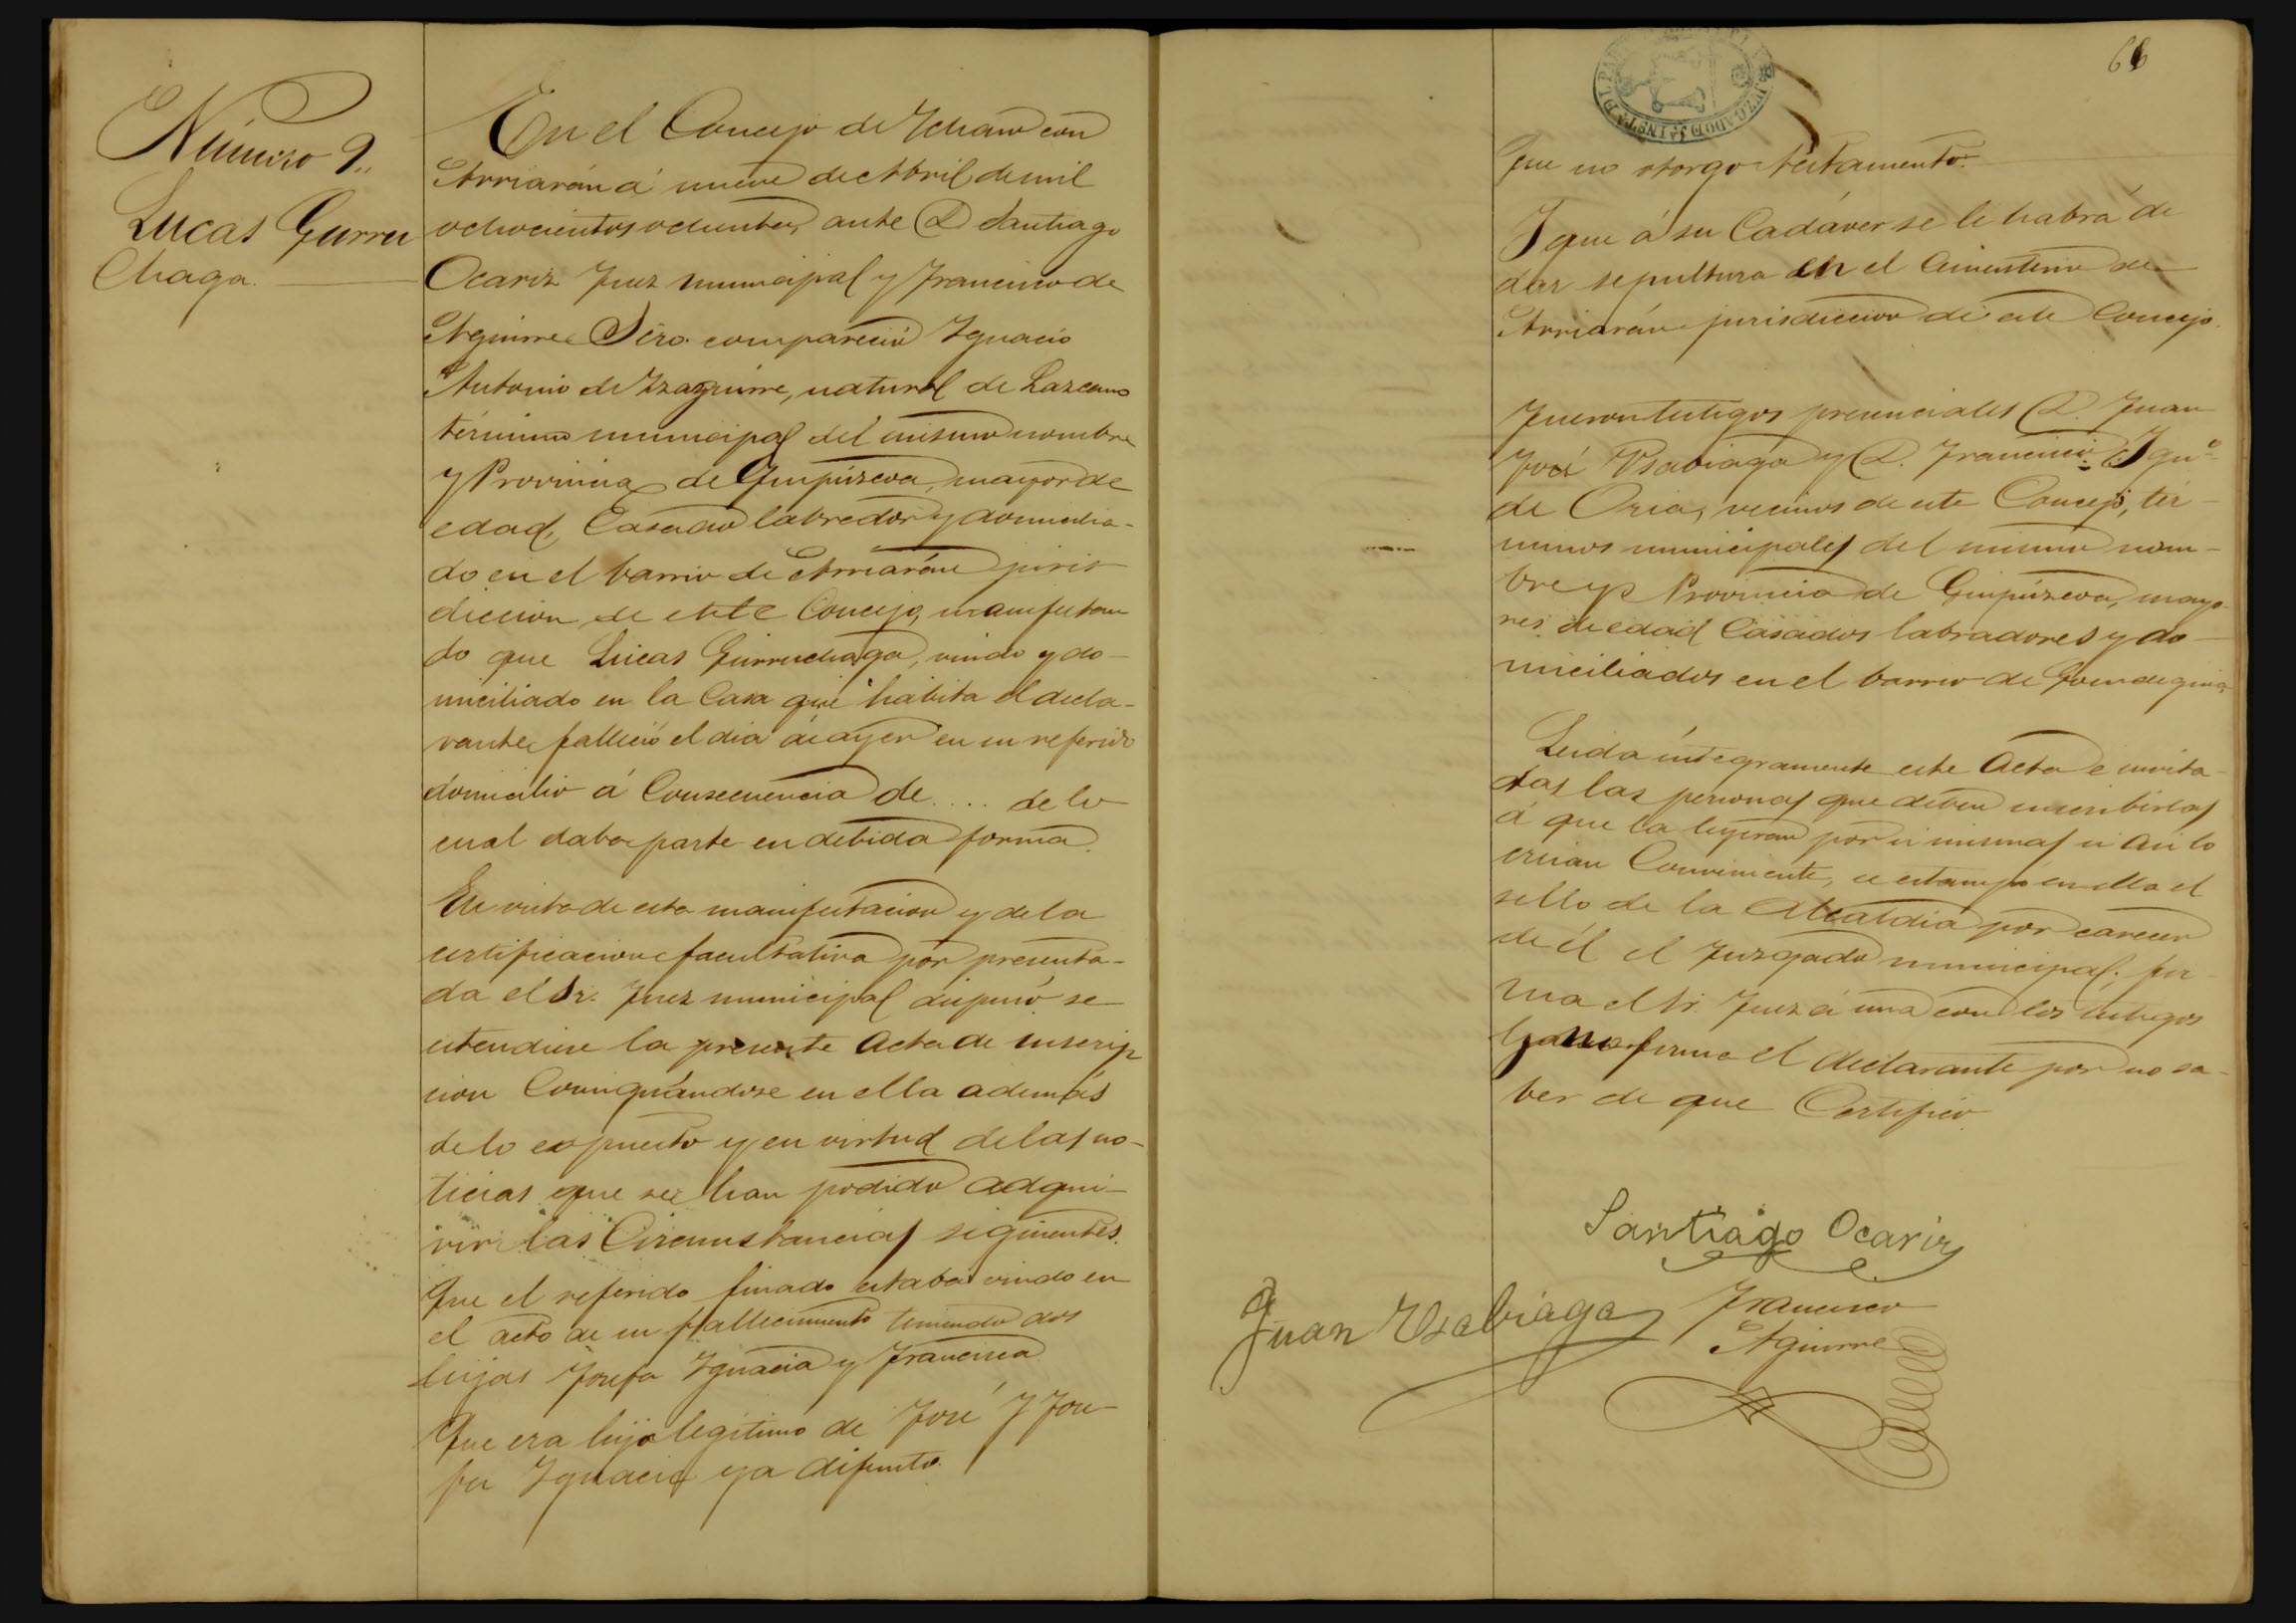 Número 9.,
Lucas Gurru
Chaga.
En el Concejo de Ichaso con
Arriarán á nueve de Abril de mil
ochocientos ochenta, ante D Santiago
Ocariz Juez municipal y Francisco de
Aguirre Srio. compareció Ygnacio
Antonio de Yzaguirre, natural de Lazcano
término municipal del mismo nombre
y Provincia de Guipúzcoa, mayor de
edad, Casado labrador y domicilia-
do en el barrio de Arriarán juris
diccion de este Concejo, manifestan
do que Lucas Gurruchaga, viudo y do-
miciliado en la Casa que habita el decla-
rante, falleció el dia de ayer en su referido
domicilio á Consecuencia de .... de lo
cual daba parte en debida forma.
En vista de esta manifestacion y de la
certificacion facultativa por presenta-
da el Sr. Juez municipal dispuso se
estendiese la presente Acta de inscrip
cion Consignándose en ella además
de lo expuesto y en virtud de las no-
ticias que se han podido adqui-
rir las Circunstancias siguientes.
Que el referido finado estaba viudo en
el acto de su fallecimiento teniendo dos
hijas Josefa Ygnacia y Francisca.
Que era hijo legitimo de José y Jose
fa Ygnacia ya difunto.
66
JUZGADO DE 1ª INSTA DEL PAR
Que no otorgo testamento.
Y que á su Cadáver se le habrá de
dar sepultura en el Cimenterio de
Arriarán jurisdiccion de este Concejo.
Fueron testigos presenciales D. Juan
José Usabiaga y D. Francisco Ygn.º
de Oria, vecinos de este Concejo, tér-
minos municipales del mismo nom-
bre y Provincia de Guipúzcoa, mayo-
res de edad Casados labradores y do-
miciliados en el barrio de
Leida íntegramente este Acta e invita-
das las personas que deben suscribirlas
á que la leyeran por si mismas si asi lo
creian Conveniente, se estampó en ella el
sello de la Alcaldia por carecer
de él el Juzgado municipal; fir-
ma el Sr. Juez á una con los testigos
y no firma el declarante por no sa-
ber de que Certifico.
Santiago Ocariz
Juan Usabiaga
Francisco
Aguirre